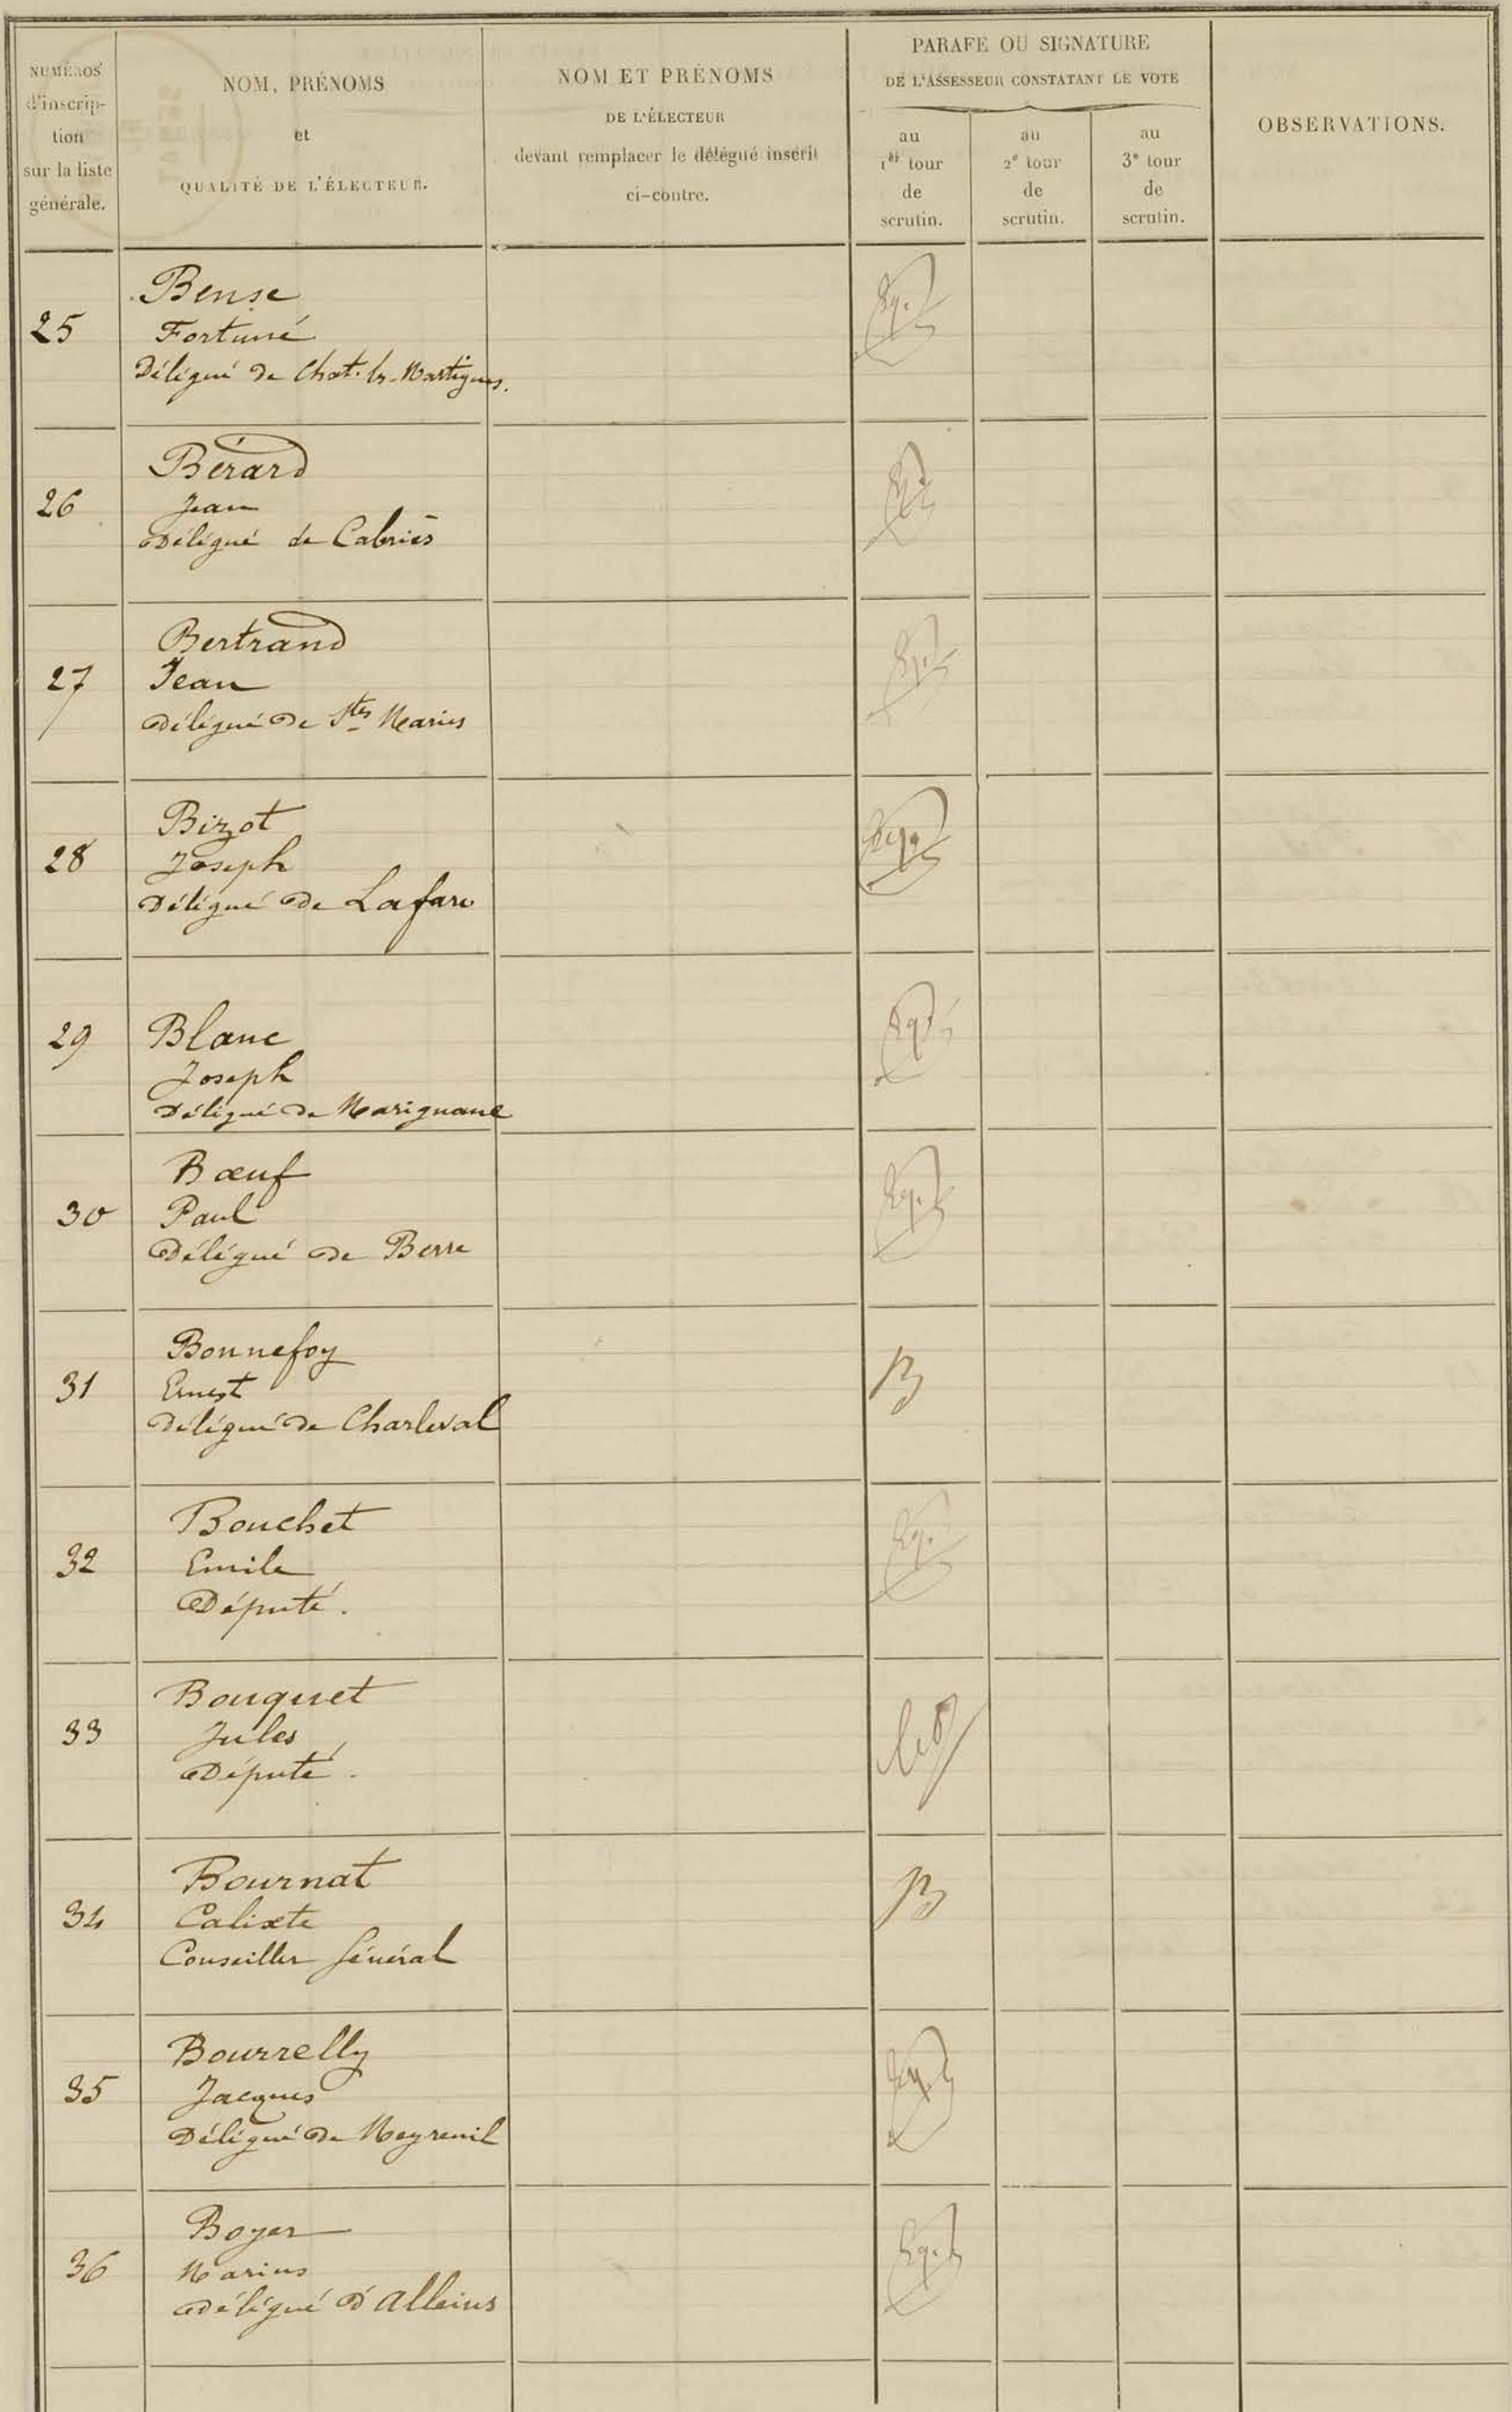 NUMÉROS
d'inscrip-
tion
sur la liste
générale.
NOM, PRÉNOMS
et
QUALITÉ DE L'ÉLECTEUR.
NOM ET PRÉNOMS
DE L'ÉLECTEUR
devant remplacer le délégué inscrit
ci-contre.
PARAFE OU SIGNATURE
DE L'ASSESSEUR CONSTATANT LE VOTE
au
1er tour
de
scrutin.
au
2e tour
de
scrutin.
au
3e tour
de
scrutin.
OBSERVATIONS.
25
Bense
Fortuné
Délégué de Chat. les Martigues.
26
Bérard
Jean
Délégué de Cabriès
27
Bertrand
Jean
Délégué de Stes Maries
28
Bizot
Joseph
Délégué de Lafare
29
Blanc
Joseph
Délégué de Marignane
30
Bœuf
Paul
Délégué de Berre
31
Bonnefoy
Ernest
Délégué de Charleval
B
32
Bouchet
Emile
Député.
33
Bouquet
Jules
Député.
34
Bournat
Calixte
Conseiller Général
B
35
Bourrelly
Jacques
Délégué de Meyreuil
36
Boyer
Marius
Délégué d'Alleins